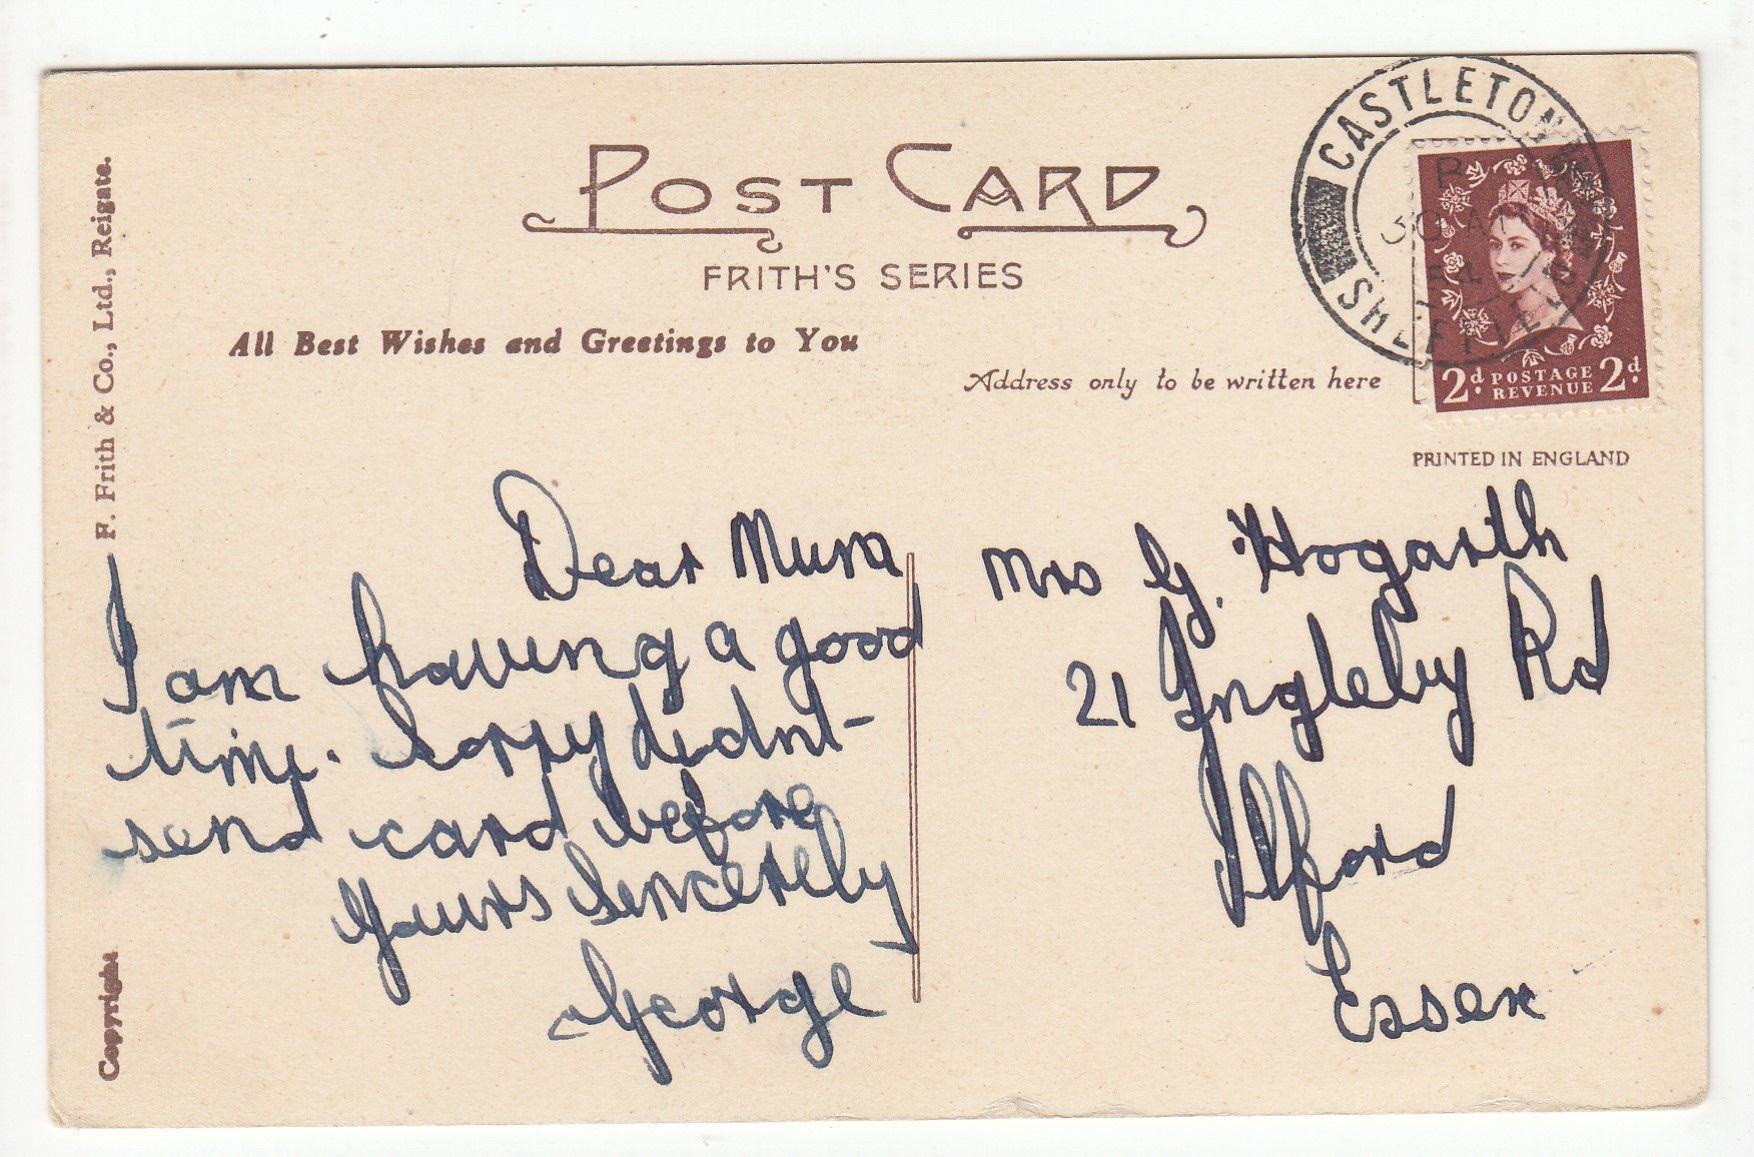 POST CARD
FRITH'S SERIES
All Best Wishes and Greetings to You
Address only to be written here
PRINTED IN ENGLAND
CASTLETON
SHEFFIELD
2d. POSTAGE REVENUE 2d.
F. Frith & Co., Ltd., Reigate.
Copyright
Dear Mum
I am having a good
time. Sorry didnt
send card before
Yours Sincerely
George
Mrs G. Hogarth
21 Ingleby Rd
Ilford
Essex